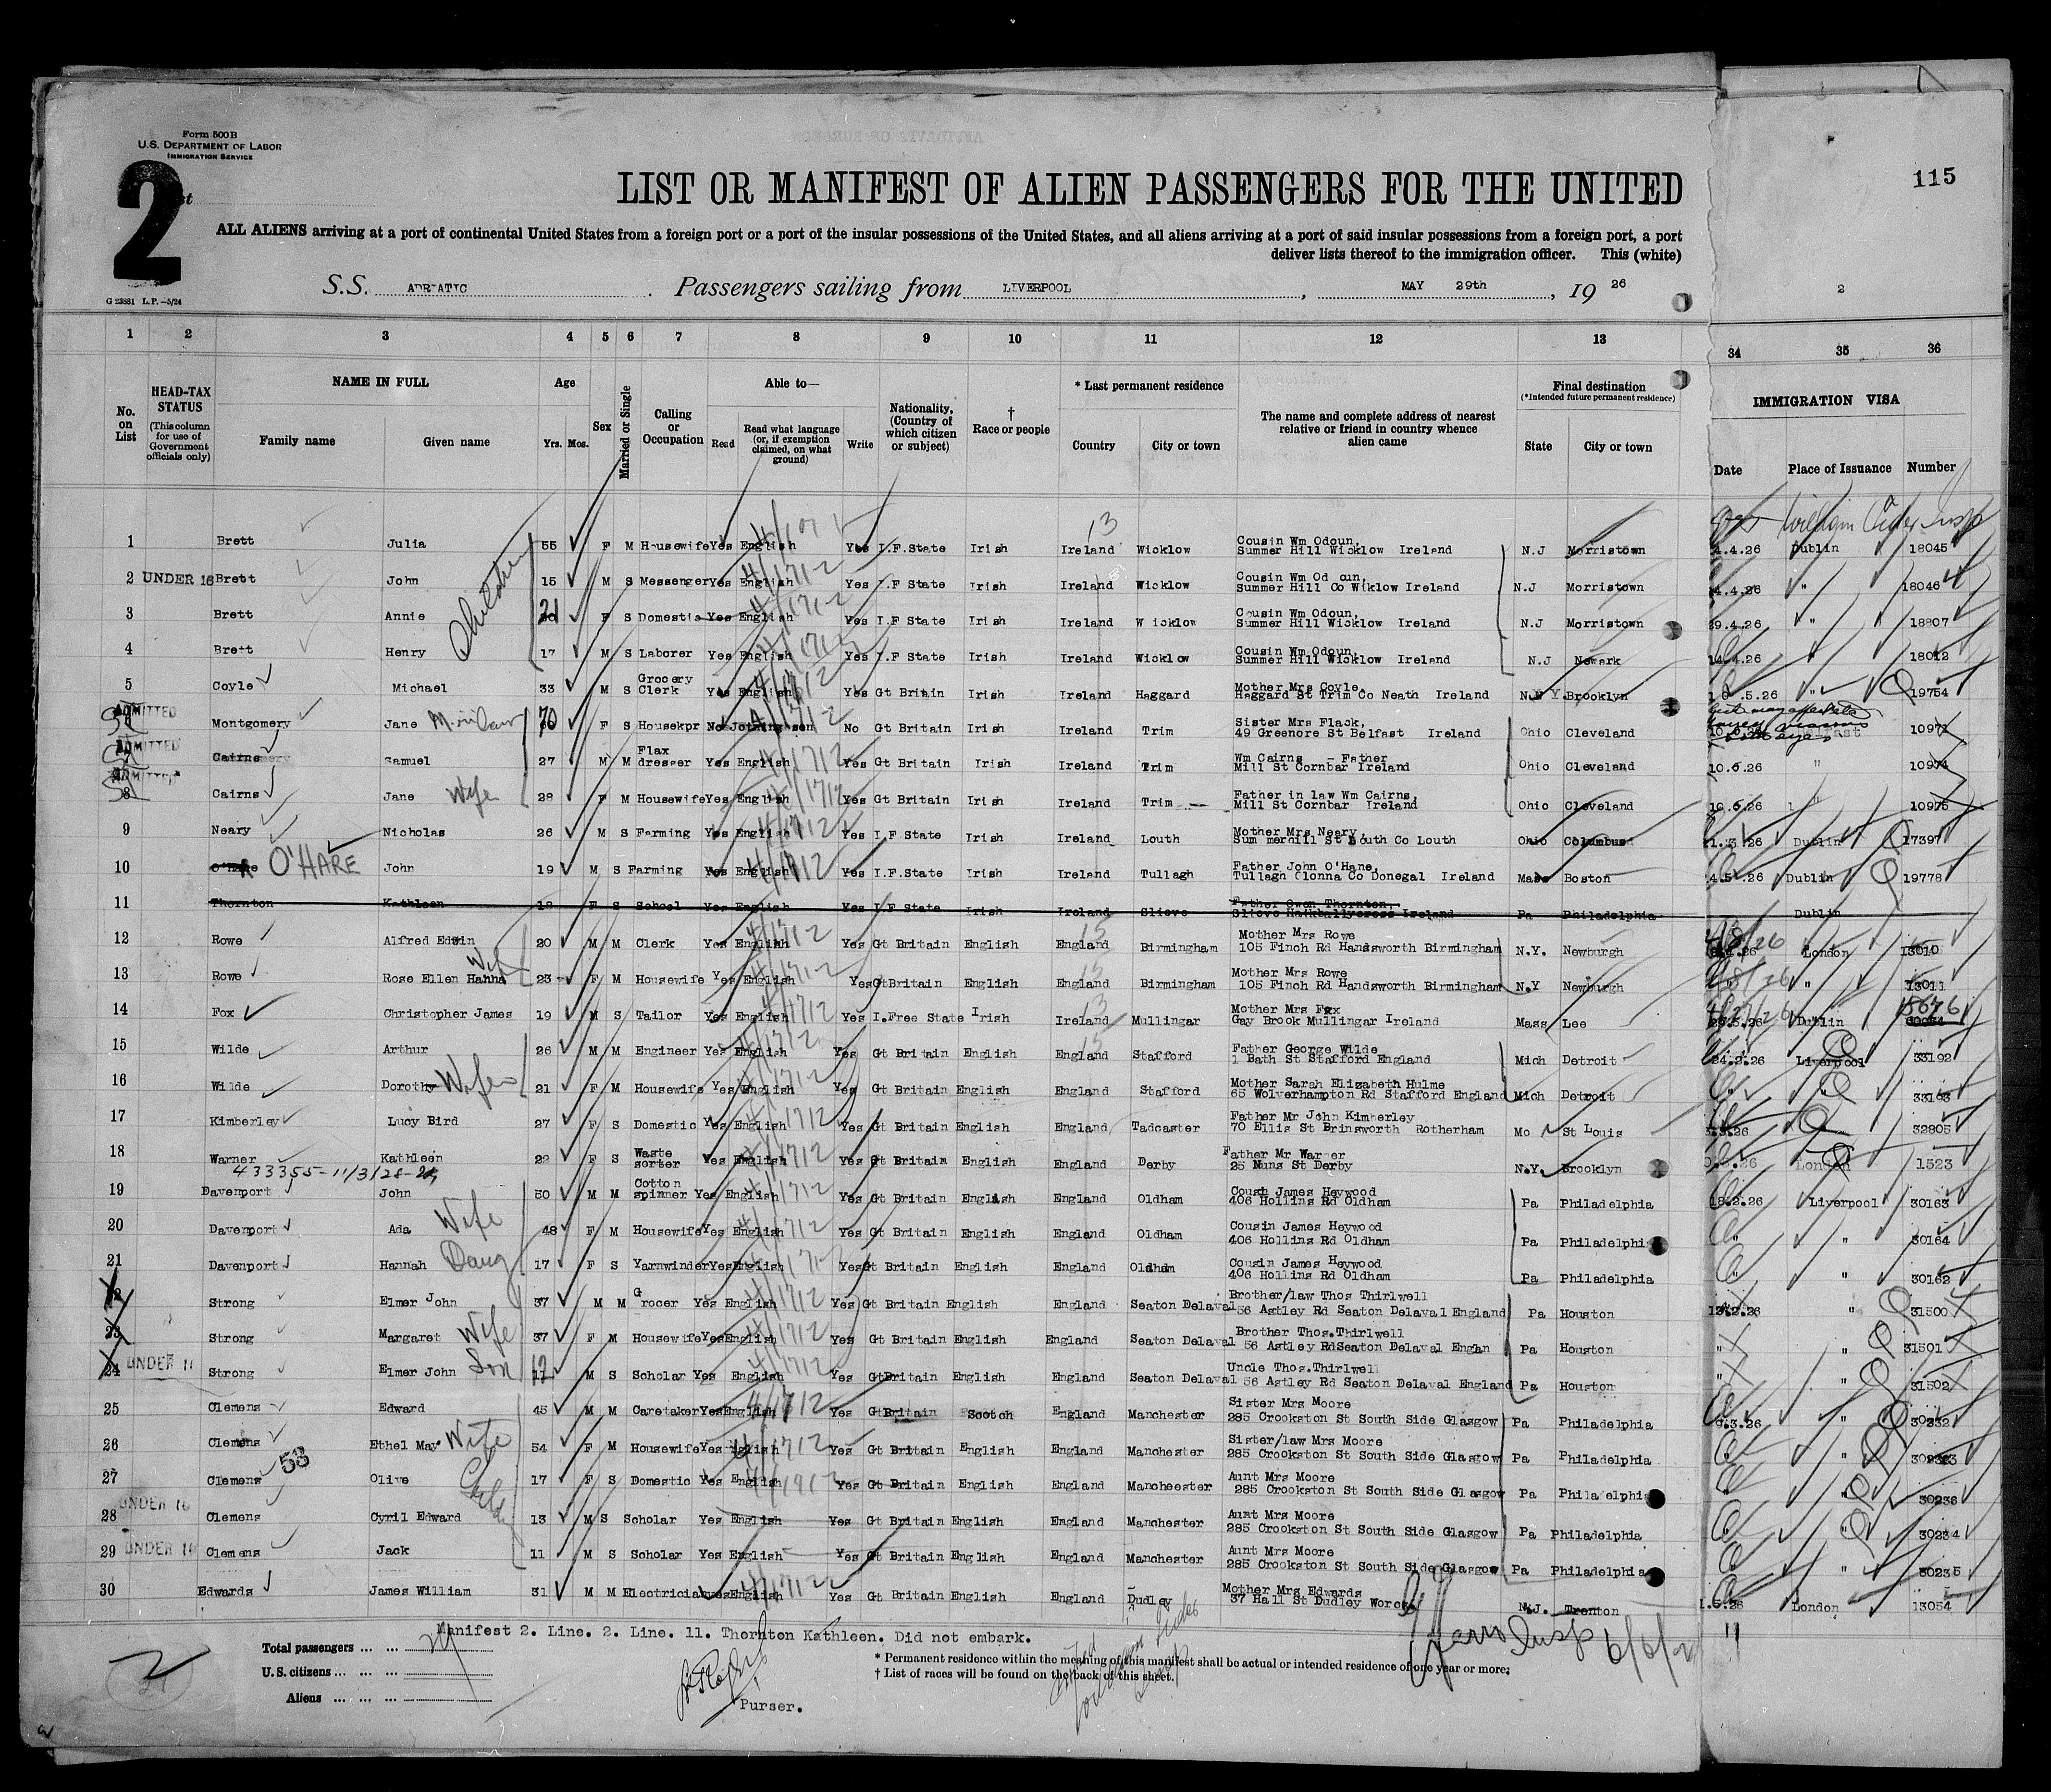 Form 500B
U.S. DEPARTMENT OF LABOR
IMMIGRATION SERVICE
2
115
LIST OR MANIFEST OF ALIEN PASSENGERS FOR THE UNITED
ALL ALIENS arriving at a port of continental United States from a foreign port or a port of the insular possessions of the United States, and all aliens arriving at a port of said insular possessions from a foreign port, a port
deliver lists thereof to the immigration officer. This (white)
G 23881 L.P.—5/24
S.S. ADRIATIC. Passengers sailing from LIVERPOOL, MAY 29th, 19 26
2
1 2 3 4 5 6 7 8 9 10 11 12 13 34 35 36
No. on List
HEAD-TAX STATUS (This column for use of Government officials only)
NAME IN FULL Family name Given name
Age Yrs. Mos.
Sex
Married or Single
Calling or Occupation
Able to— Read Read what language (or, if exemption claimed, on what ground) Write
Nationality, (Country of which citizen or subject)
† Race or people
* Last permanent residence Country City or town
The name and complete address of nearest relative or friend in country whence alien came
Final destination (*Intended future permanent residence) State City or town
IMMIGRATION VISA Date Place of Issuance Number
1 Brett Julia 55 F M Housewife Yes English Yes I.F.State Irish Ireland Wicklow Cousin Wm Odoun, Summer Hill Wicklow Ireland N.J Morristown 4.4.26 Dublin 18045
2 UNDER 16 Brett John 15 M S Messenger Yes English Yes I.F State Irish Ireland Wicklow Cousin Wm Od oun, Summer Hill Co Wiklow Ireland N.J Morristown 4.4.26 " 18046
Children
3 Brett Annie 21 F S Domestic Yes English Yes I.F State Irish Ireland W icklow Cousin Wm Odoun, Summer Hill Wicklow Ireland N.J Morristown 9.4.26 " 18807
4 Brett Henry 17 M S Laborer Yes English Yes I.F State Irish Ireland Wicklow Cousin Wm Odoun, Summer Hill Wicklow Ireland N.J Newark 14.4.26 18012
5 Coyle Michael 33 M S Grocery Clerk Yes English Yes Gt Britain Irish Ireland Haggard Mother Mrs Coyle, Haggard St Trim Co Neath Ireland N.Y. Brooklyn .5.26 " 19754
ADMITTED Montgomery Jane 70 F S Housekpr No No Gt Britain Irish Ireland Trim Sister Mrs Flack, 49 Greenore St Belfast Ireland Ohio Cleveland
ADMITTED Cairns Samuel 27 M M Flax dresser Yes English Yes Gt Britain Irish Ireland Trim Wm Cairns - Father Mill St Cornbar Ireland Ohio Cleveland 10.5.26 " 10974
ADMITTED 8 Cairns Jane Wife 28 F M Housewife Yes English Yes Gt Britain Irish Ireland Trim Father in law Wm Cairns, Mill St Cornbar Ireland Ohio Cleveland 10.5.26 10975
9 Neary Nicholas 26 M S Farming Yes English Yes I.F State Irish Ireland Louth Mother Mrs Neary, Sum merhill St Louth Co Louth Ohio Columbus 1.3.26 Dublin 17397
10 O'HARE John 19 M S Farming Yes English Yes I.F.State Irish Ireland Tullagh Father John O'Hane, Tullagh Clonna Co Donegal Ireland Mass Boston Dublin 19778
11 Thornton Kathleen 18 F S School Yes English Yes I.F State Irish Ireland Slieve Father Owen Thornton, Ireland Pa Philadelphia Dublin
12 Rowe Alfred Edwin 20 M M Clerk Yes English Yes Gt Britain English England Birmingham Mother Mrs Rowe 105 Finch Rd Handsworth Birmingham N.Y. Newburgh London 13010
13 Rowe Rose Ellen Hanna 23 F M Housewife Yes English Yes Gt Britain English England Birmingham Mother Mrs Rowe 105 Finch Rd Handsworth Birmingham N.Y Newburgh " 13011
14 Fox Christopher James 19 M S Tailor Yes English Yes I.Free State Irish Ireland Mullingar Mother Mrs Fox Gay Brook Mullingar Ireland Mass Lee Dublin 15676
15 Wilde Arthur 26 M M Engineer Yes English Yes Gt Britain English England Stafford Father George Wilde 1 Bath St Stafford England Mich Detroit 24.2.26 Liverpool 33192
16 Wilde Dorothy Wife 21 F M Housewife Yes English Yes Gt Britain English England Stafford Mother Sarah Elizabeth Hulme 65 Wolverhampton Rd Stafford England Mich Detroit " 33193
17 Kimberley Lucy Bird 27 F S Domestic Yes English Yes Gt Britain English England Tadcaster Father Mr John Kimberley 70 Ellis St Brinsworth Rotherham Mo St Louis 32805
18 Warner Kathleen 22 F S Waste sorter Yes English Yes Gt Britain English England Derby Father Mr Warner 25 Nuns St Derby N.Y. Brooklyn London 1523
433355-11/3/28-
19 Davenport John 50 M M Cotton spinner Yes English Yes Gt Britain English England Oldham Cousi James Heywood 406 Hollins Rd Oldham Pa Philadelphia 18.2.26 Liverpool 30163
20 Davenport Ada Wife 48 F M Housewife Yes English Yes Gt Britain English England Oldham Cousin James Heywood 406 Hollins Rd Oldham Pa Philadelphia " 30164
21 Davenport Hannah Daug 17 F S Yarnwinder Yes English Yes Gt Britain English England Oldham Cousin James Heywood 406 Hollins Rd Oldham Pa Philadelphia " 30162
22 Strong Elmer John 37 M M Grocer Yes English Yes Gt Britain English England Seaton Delaval Brother/law Thos Thirlwell 56 Astley Rd Seaton Delaval England Pa Houston 12.2.26 " 31500
23 Strong Margaret Wife 37 F M Housewife Yes English Yes Gt Britain English England Seaton Delaval Brother Thos.Thirlwell 56 Astley Rd Seaton Delaval Englan Pa Houston " " 31501
24 UNDER 16 Strong Elmer John Son 12 M S Scholar Yes English Yes Gt Britain English England Seaton Delaval Uncle Thos.Thirlwell 56 Astley Rd Seaton Delaval England Pa Houston " " 31502
25 Clemens Edward 45 M M Caretaker Yes English Yes Gt Britain Scotch England Manchester Sister Mrs Moore 285 Crookston St South Side Glasgow Pa Philadelphia .3.26 " 30232
26 Clemens Ethel May Wife 54 F M Housewife Yes English Yes Gt Britain English England Manchester Sister/law Mrs Moore 285 Crookston St South Side Glasgow Pa Philadelphia " 30233
53
27 Clemens Olive 17 F S Domestic Yes English Yes Gt Britain English England Mancheester Aunt Mrs Moore 285 Crookston St South Side Glasgow Pa Philadelphia " 30236
28 UNDER 16 Clemens Cyril Edward 13 M S Scholar Yes English Yes Gt Britain English England Manchester Aunt Mrs Moore 285 Crookston St South Side Glasgow Pa Philadelphia " 30234
29 UNDER 16 Clemens Jack 11 M S Scholar Yes English Yes Gt Britain English England Manchester Aunt Mrs Moore 285 Crookston St South Side Glasgow Pa Philadelphia " 30235
30 Edwards James William 31 M M Electrician Yes English Yes Gt Britain English England Dudley Mother Mrs Edwards 37 Hall St Dudley Worcs N.J. Trenton 1.5.26 London 13054
Manifest 2. Line. 2. Line. 11. Thornton Kathleen. Did not embark.
Total passengers ... ...
U.S. citizens ... ... ...
Aliens ... ... ...
* Permanent residence within the meaning of this manifest shall be actual or intended residence of one year or more.
† List of races will be found on the back of this sheet.
Purser.